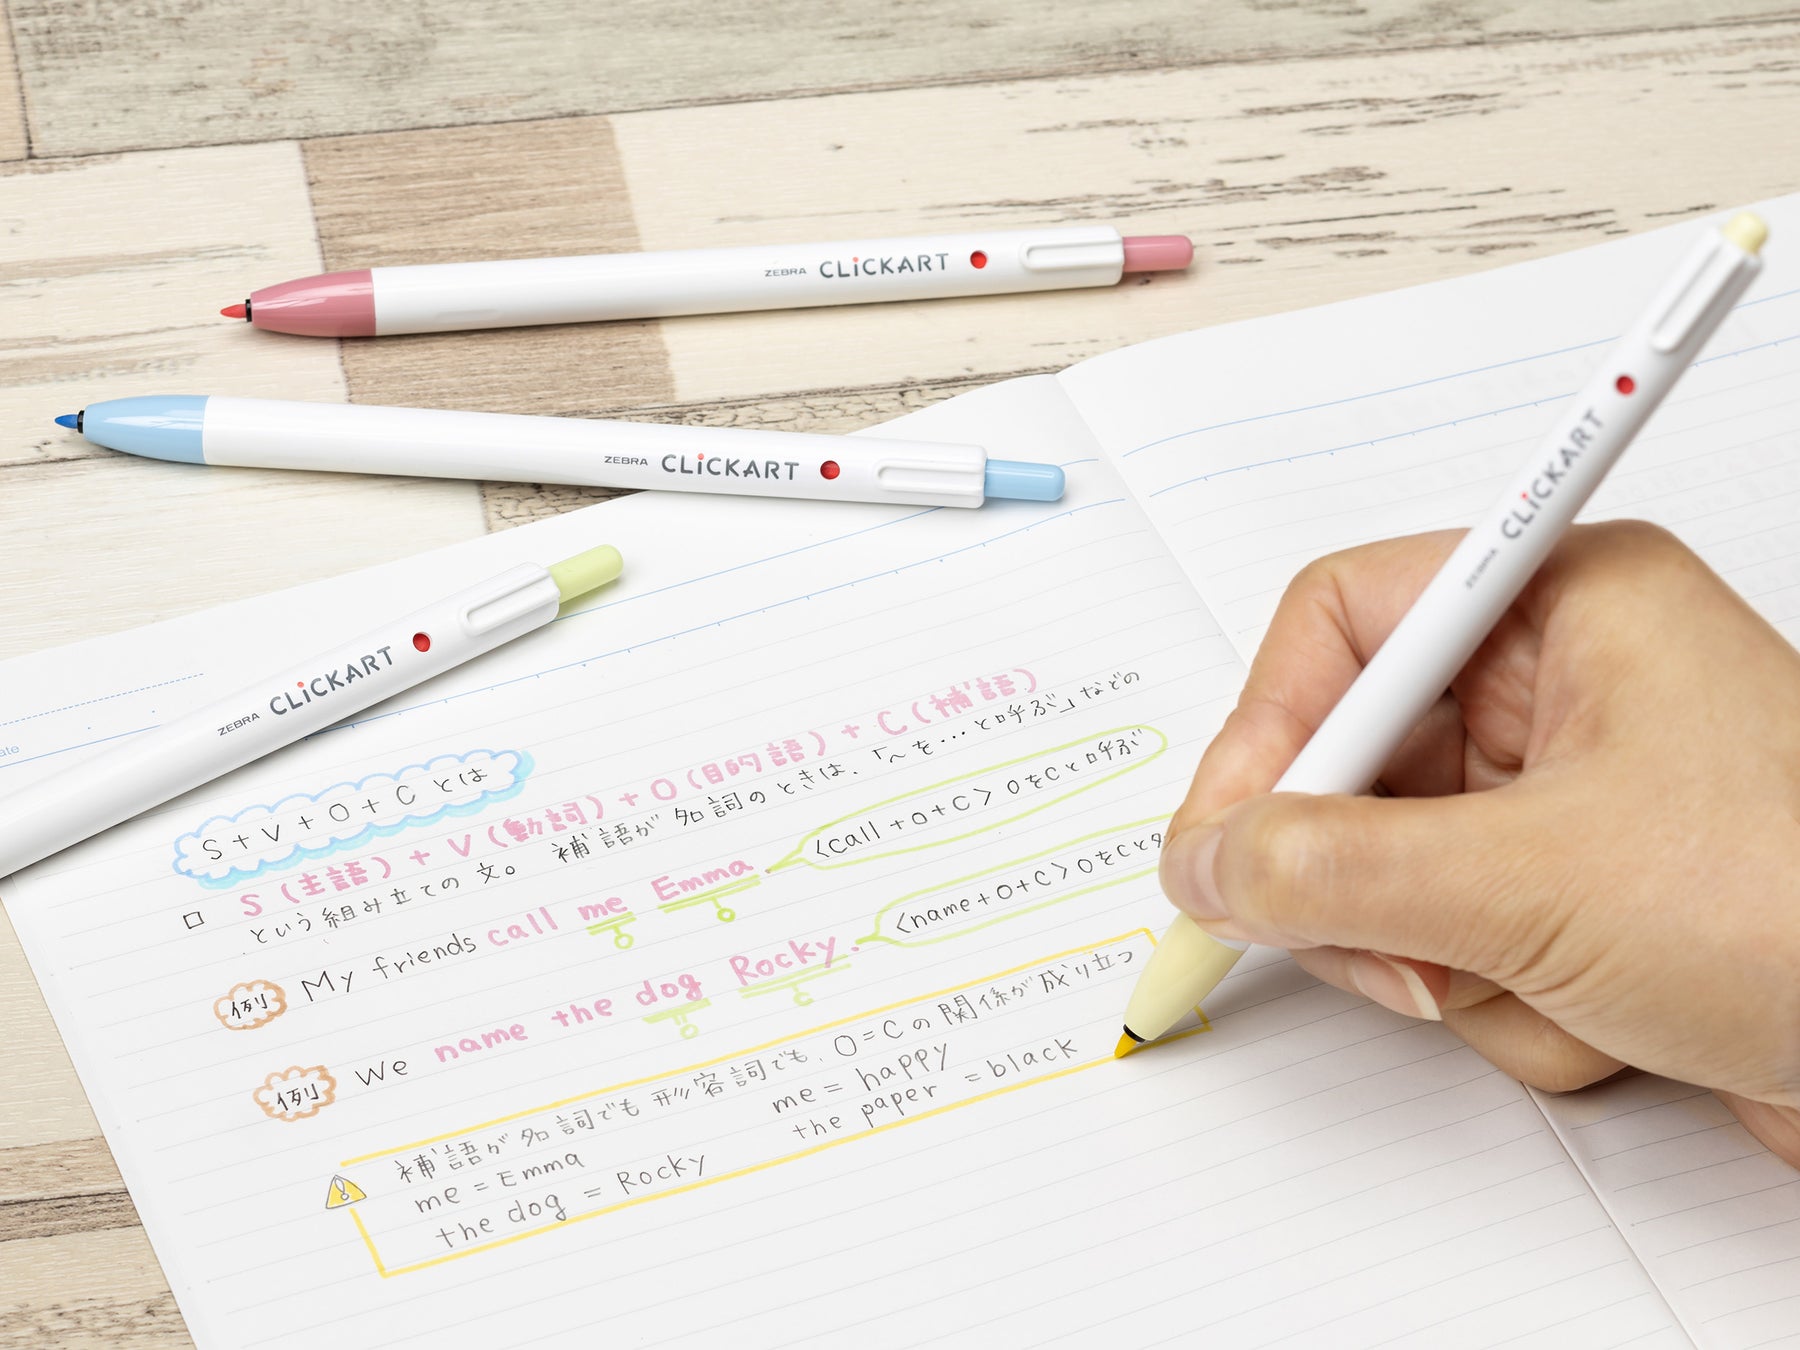 ZEBRA CLiCKART
ZEBRA CLiCKART
ZEBRA CLiCKART
ZEBRA CLiCKART
ate
S+V+O+Cとは
□ S(主語)+V(動詞)+O(目的語)+C(補語)
という組み立ての文。補語が名詞のときは、「〜を…と呼ぶ」などの
例 My friends call me Emma.
O C
<call+O+C> OをCと呼ぶ
例 We name the dog Rocky.
O C
<name+O+C> OをCと
補語が名詞でも形容詞でも、O=Cの関係が成り立つ
me = Emma me = happy
the dog = Rocky the paper = black